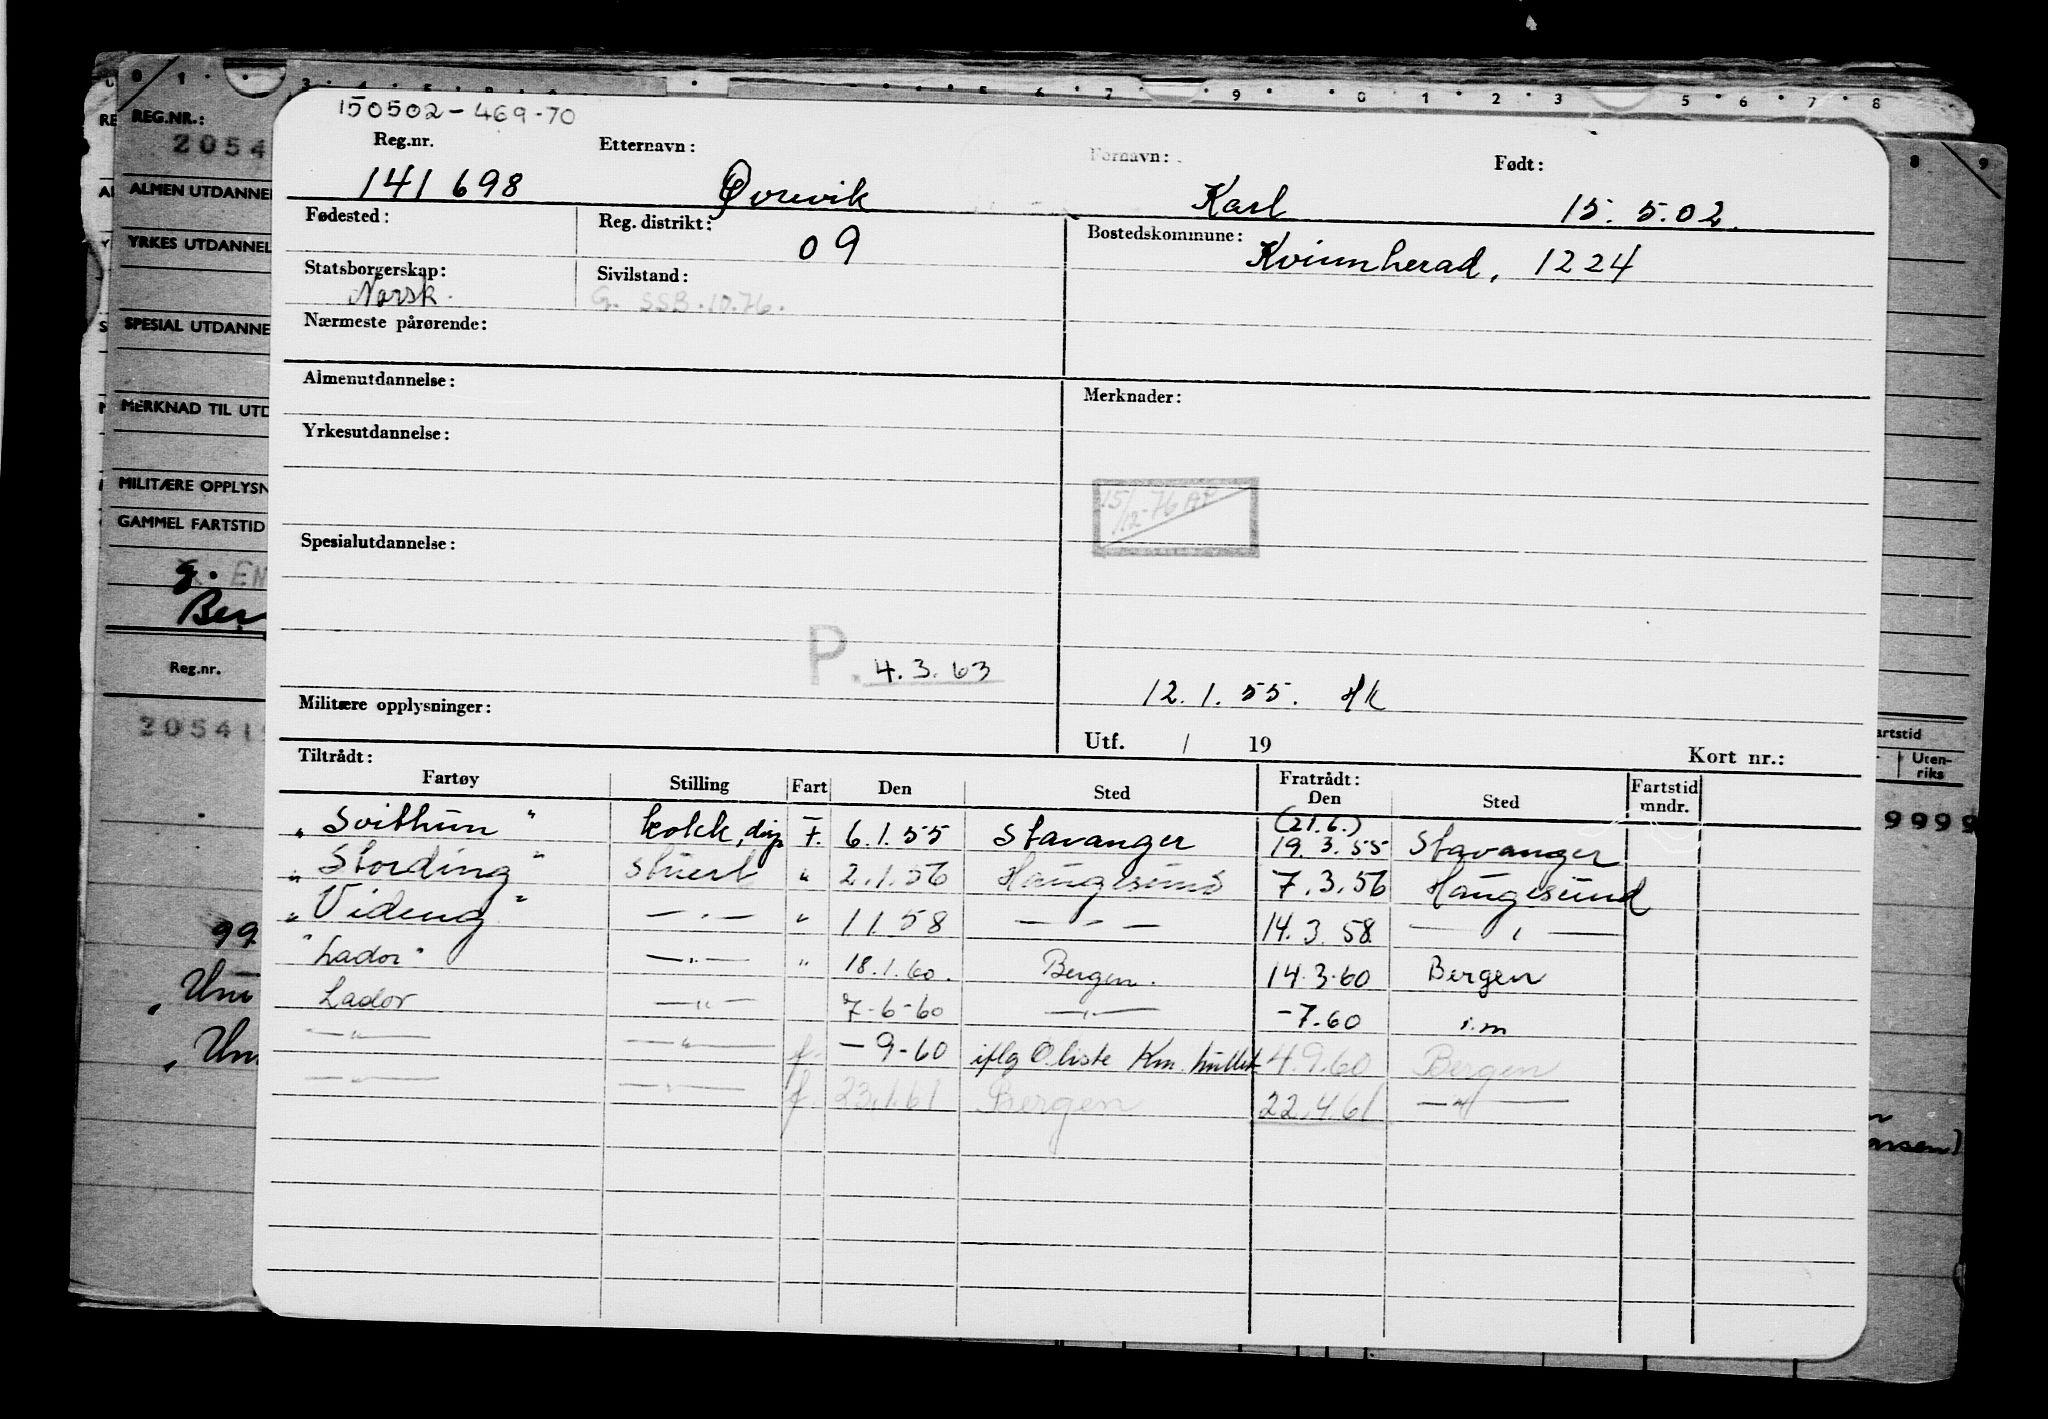 150502-469-70
Reg.nr. Etternavn: Fornavn: Født:
141 698 Øvrevik Karl 15. 5.02.
Fødested: Reg. distrikt: 09 Bostedskommune: Kvinnherad, 1224
Statsborgerskap: Norsk. Sivilstand: G. SSB.10.76.
Nærmeste pårørende:
Almenutdannelse: Merknader:
Yrkesutdannelse:
15/12-76 AP
Spesialutdannelse:
P. 4.3.63
12.1.55. HK
Militære opplysninger:
Utf. / 19 Kort nr.:
Tiltrådt: Fratrådt:
Fartøy Stilling Fart Den Sted Den Sted Fartstid mndr.
(21.6.)
"Svithun" kokk, F. 6.1.55 Stavanger 19.3.55 Stavanger
"Stording" stuert " 2.1.56 Haugesund 7.3.56 Haugesund
"Videng" —"— " 1 1 58 —"— 14.3.58. —"—
"Lador" —"— " 18.1.60. Bergen. 14.3.60 Bergen
Lador —"— 7-6-60 —"— -7.60 i.m
—"— —"— f. -9-60 iflg O.liste Km. hullet 4.9.60 Bergen
—"— —"— f. 23.1.61 Bergen 22.4.61 —"—
REG.NR.:
2054
ALMEN UTDANNE
YRKES UTDANNEL
SPESIAL UTDANNE
MERKNAD TIL UTD
MILITÆRE OPPLYSN
GAMMEL FARTSTID
g. EN
Ber
Reg.nr.
20541
99
artstid
Uten-
riks
9999